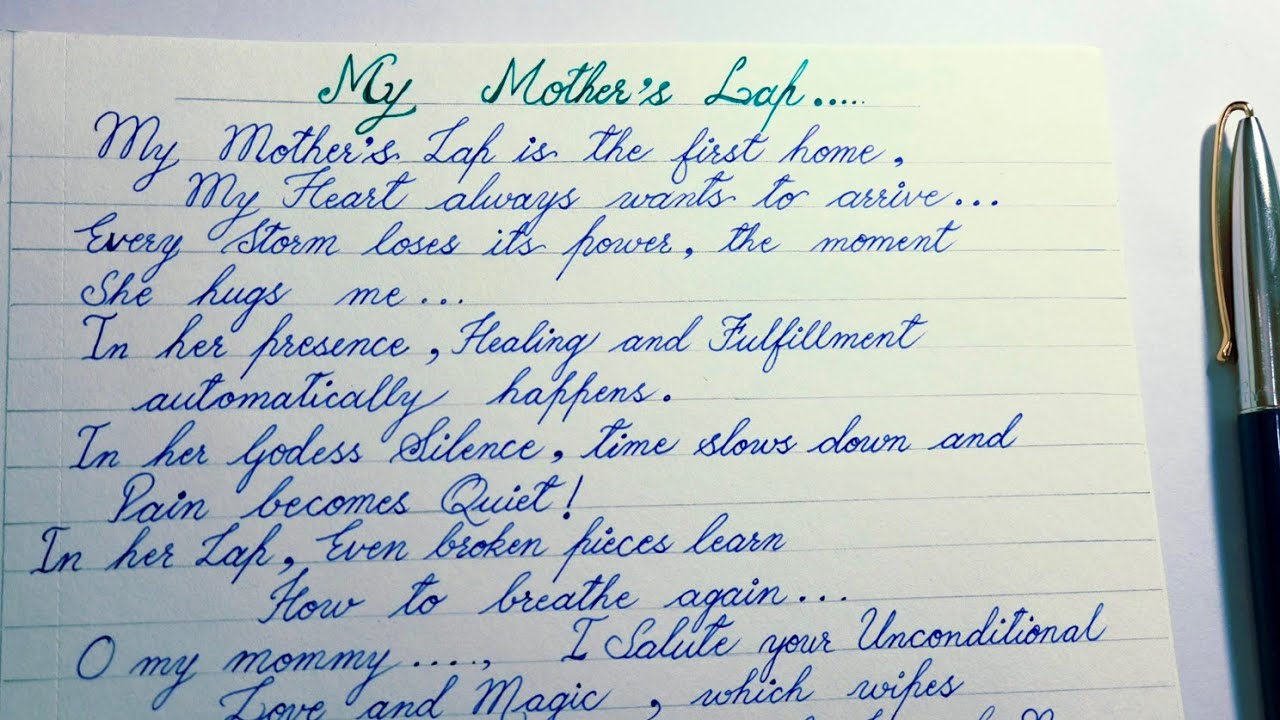 My Mother's Lap.....
My Mother's Lap is the first home,
My Heart always wants to arrive...
Every Storm loses its power, the moment
She hugs me...
In her presence, Healing and Fulfillment
automatically happens.
In her Godess Silence, time slows down and
Pain becomes Quiet!
In her Lap, Even broken pieces learn
How to breathe again...
O my mommy...., I Salute your Unconditional
Love and Magic, which wipes